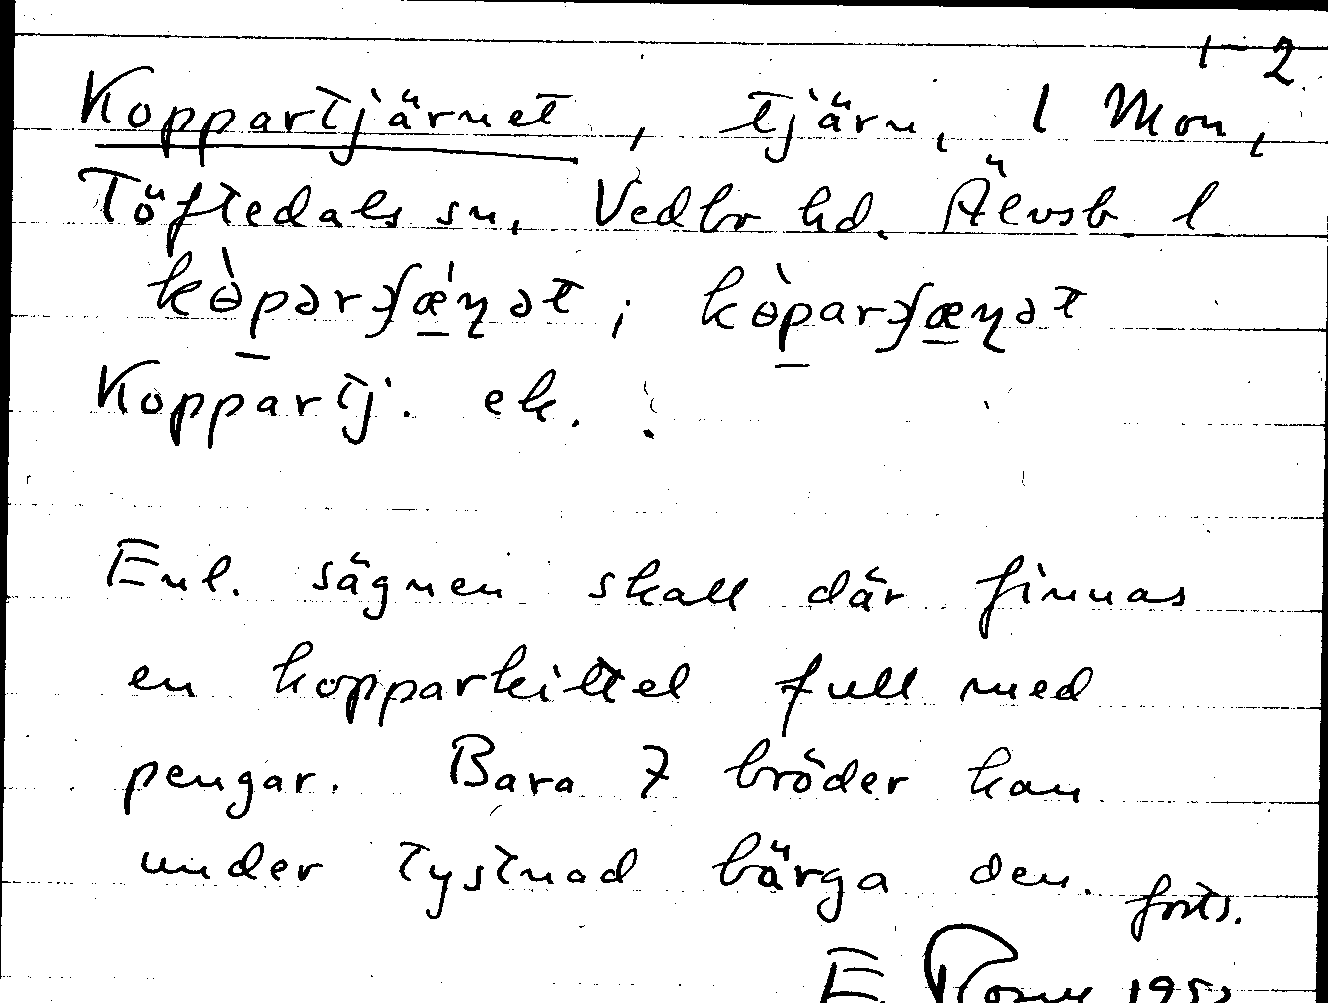 1-2
Koppartjärnet, tjärn, l Mon,
Töftedals sn, Vedbo hd. Älvsb. l
kɵ̀parʃǽɳət ; kɵ̀parʃæɳət
Koppartj. ek.
Enl. sägnen skall där finnas
en kopparkittel full med
pengar. Bara 7 bröder kan
under tystnad bärga den. forts.
E.